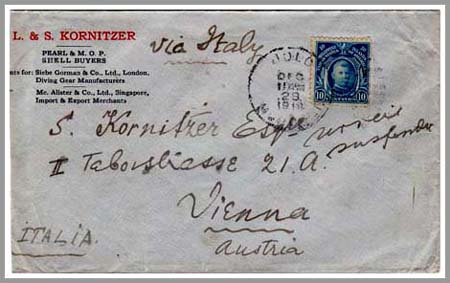 L. & S. KORNITZER
PEARL & M. O. P.
SHELL BUYERS
nts for: Siebe Gorman & Co., Ltd., London.
Diving Gear Manufacturers
Mc. Alister & Co., Ltd., Singapore,
Import & Export Merchants
via Italy
JOLO
DEC
28
10 10
S. Kornitzer Esq
II Taborstrasse 21.A.
Vienna
Austria
ITALIA.